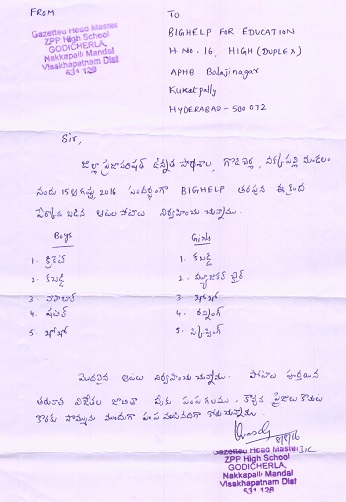 FROM
Gazetted Head Master
ZPP High School
GODICHERLA,
Nakkapalli Mandal
Visakhapatnam Dist
531 128
TO
BIGHELP FOR EDUCATION
H NO. 16, HIGH (DUPLEX)
APHB Balajinagar
Kukatpally
HYDERABAD - 500 072
Sir,
జిల్లా ప్రజాపరిషత్ ఉన్నత పాఠశాల, గొడిచెర్ల, నక్కపల్లి మండలం
నందు 15 ఆగష్టు, 2016 సందర్భంగా BIGHELP తరపున ఈ క్రింద
పేర్కొన బడిన ఆటల పోటీలు నిర్వహించు చున్నాము.
Boys
1. క్రికెట్
2. కబడ్డీ
3. వాలీబాల్
4. షటిల్
5. ఖోఖో
Girls
1. కబడ్డీ
2. మ్యూజికల్ చైర్
3. ఖోఖో
4. రన్నింగ్
5. స్కిప్పింగ్
మొదలైన ఆటలు నిర్వహించు చున్నాము. పోటీలు పూర్తయిన
తరువాత విజేతల జాబితా మీకు పంపగలము. కావున ప్రైజులు
కొరకు సొమ్మును ముందుగా పంపవలసినదిగా కోరుచున్నాము.
8/8/16
Gazetted Head Master
ZPP High School
GODICHERLA,
Nakkapalli Mandal
Visakhapatnam Dist
531 128